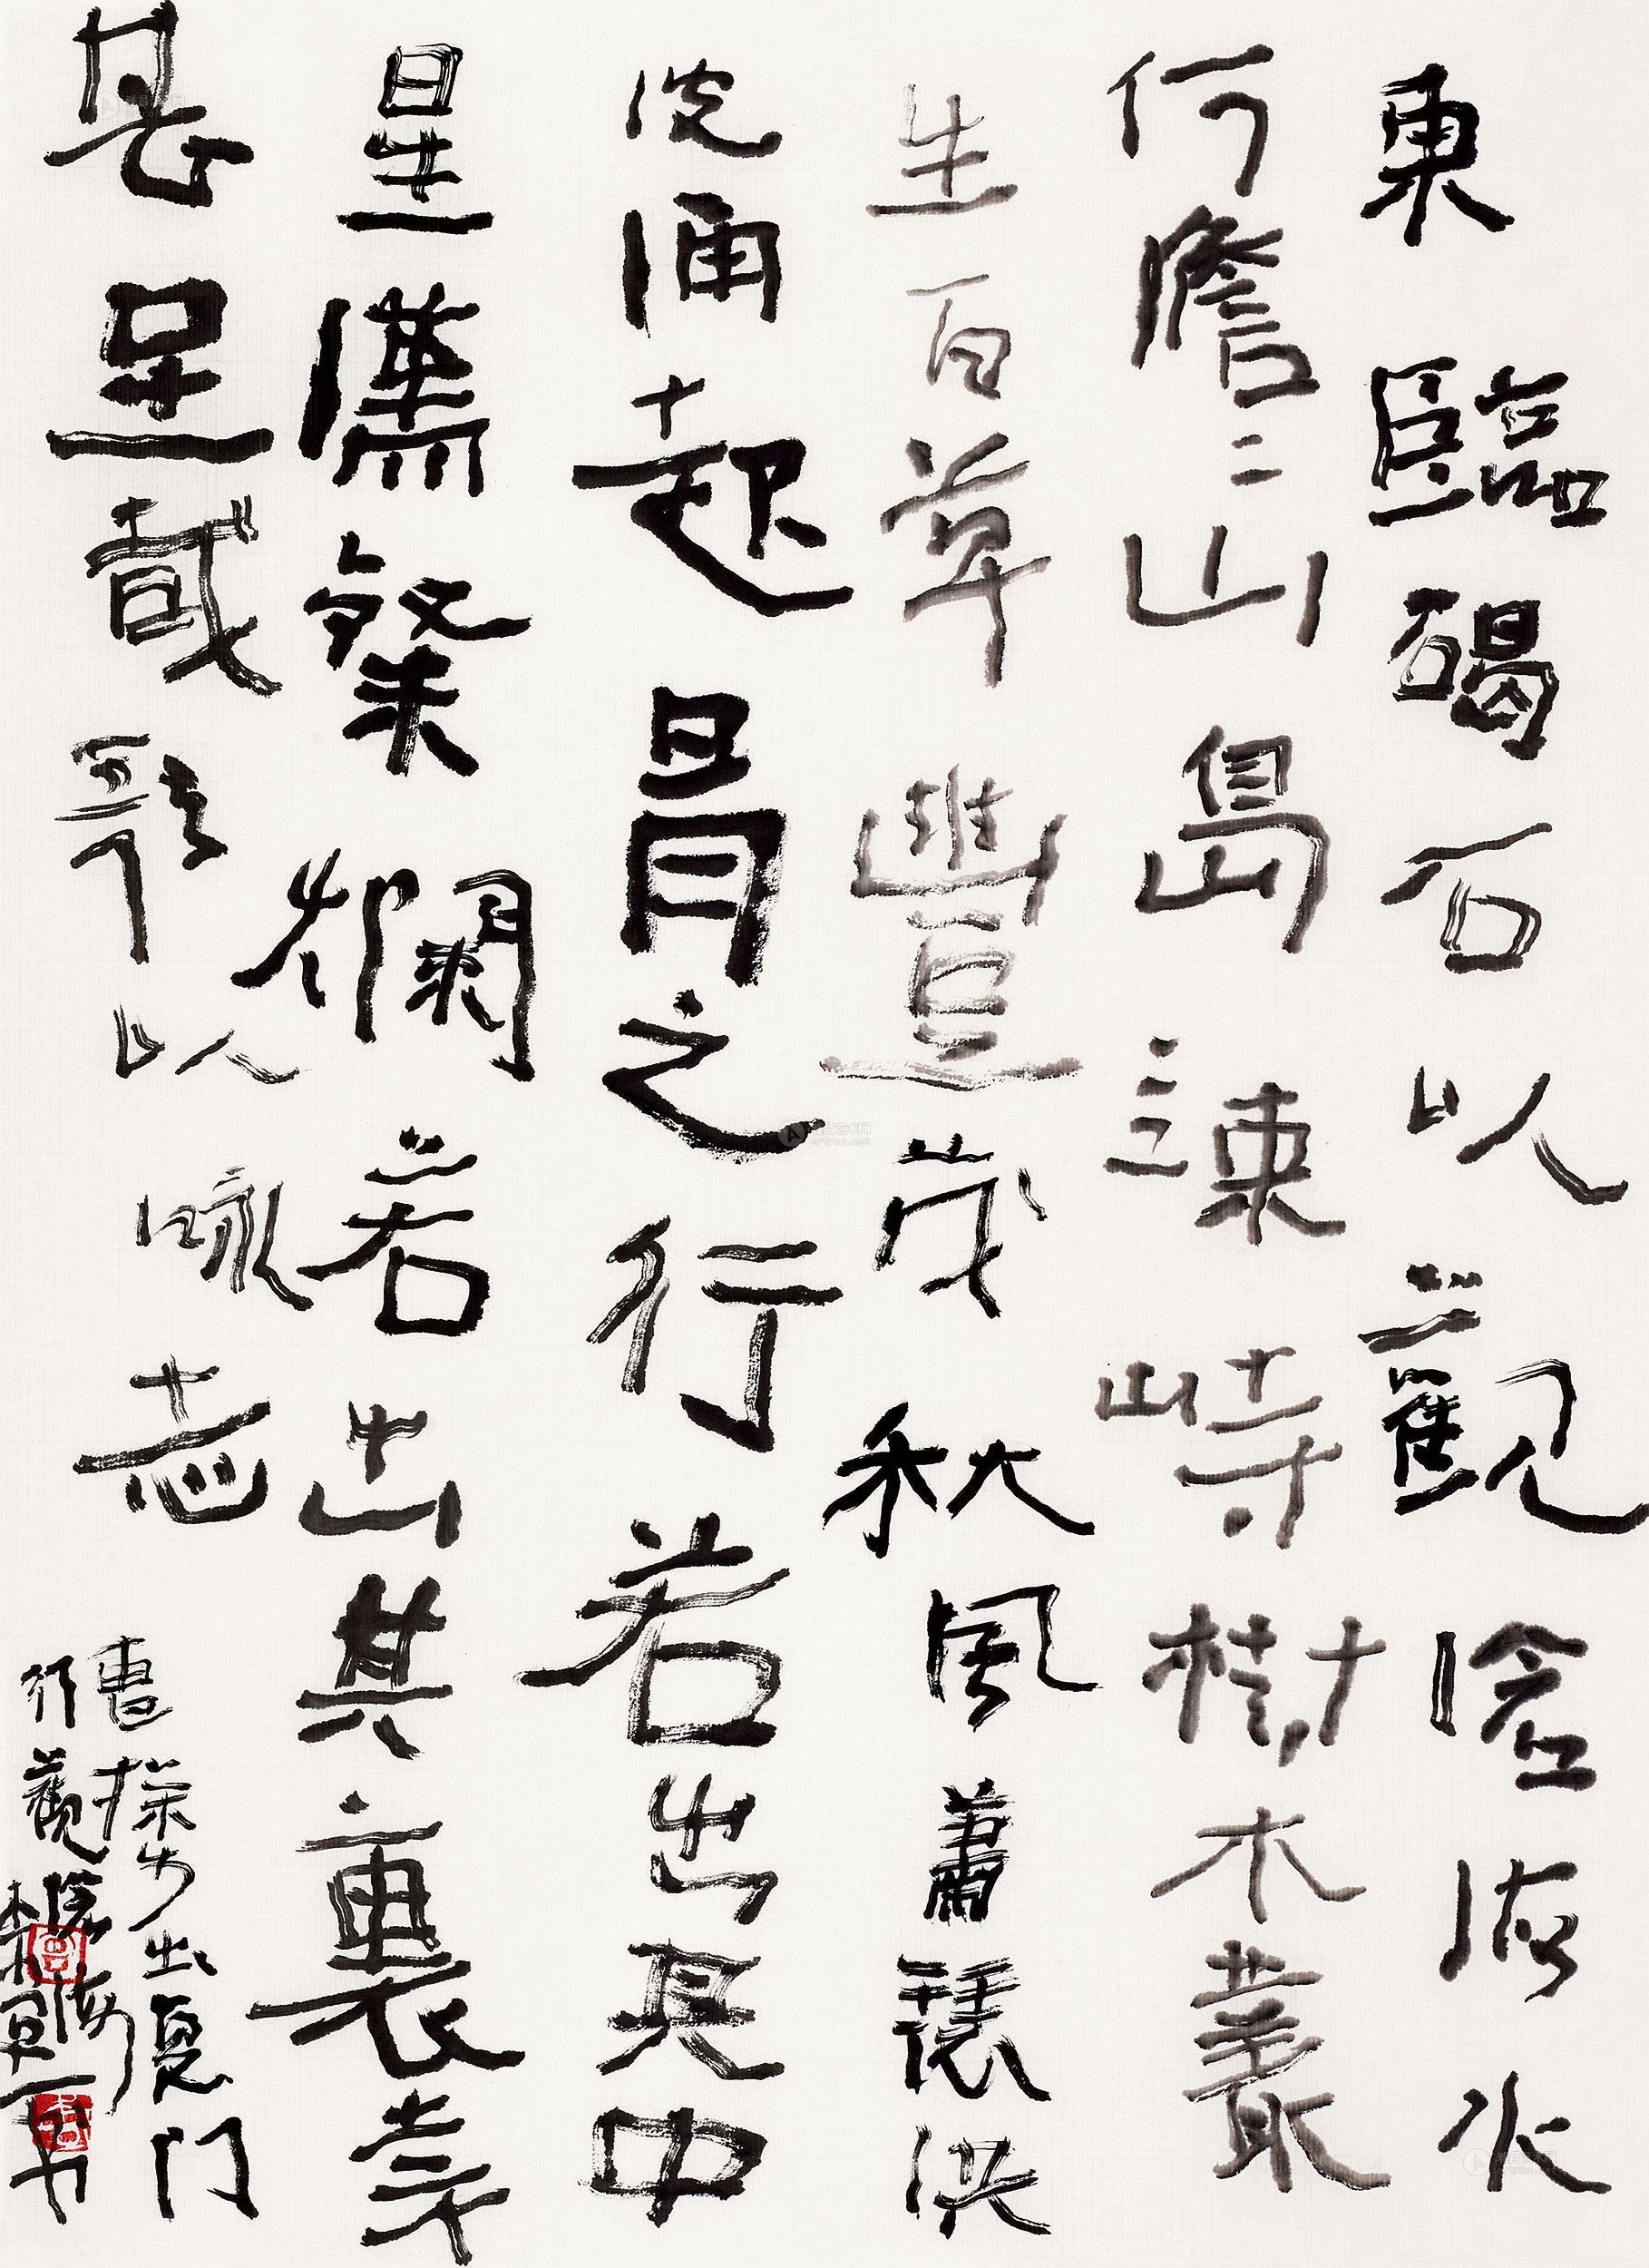 東臨碣石以觀滄海水
何澹〻山島竦峙樹木叢
生百草豐茂秋風蕭瑟洪
波涌起日月之行若出其中
星漢粲爛若出其裏幸
甚至哉歌以咏志
曹操步出夏門
行觀滄海